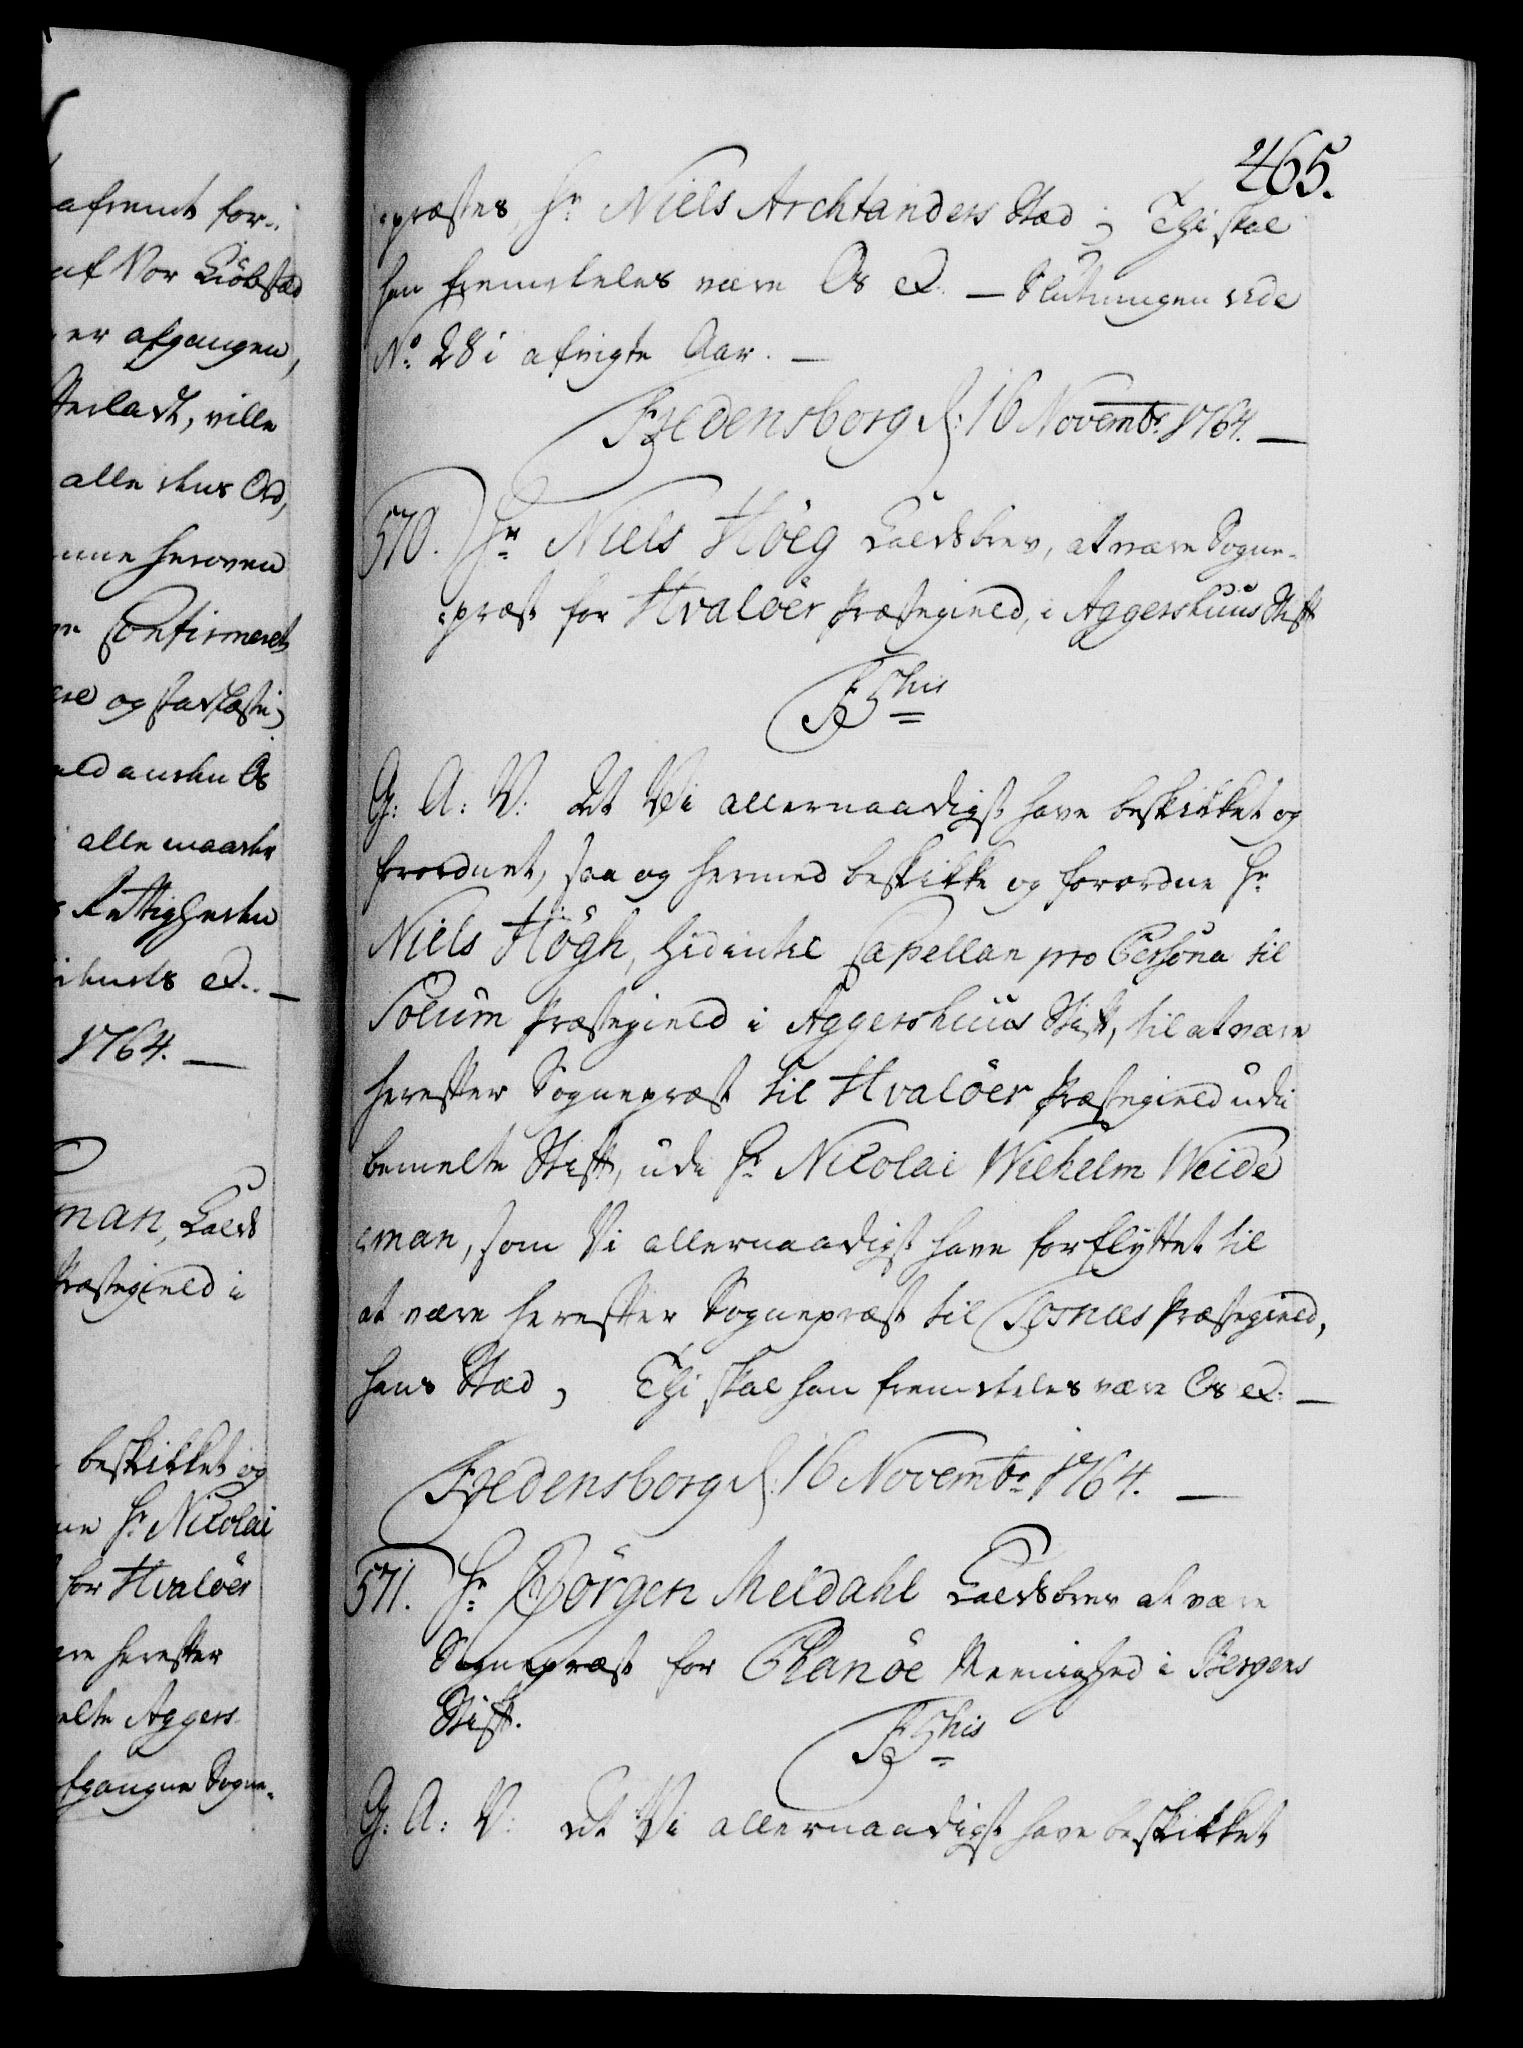 afremt for-
af Vor Kiöbstæd
er afgangen,
Skeladt, ville
alle dens Ord,
nne heroven
Confirmeret
og stadfæste;
Os
alle maader
Rettigheder
ihuds &c. —
1764. —
man, Kalds
Præstegield i
beskikket og
ne Hr. Nicolai
for Hvalöer
re herefter
elte Aggers
fgangne Sogne-
465.
-præstes, Hr. Niels Archtanders Stæd; Thi skal
han fremdeles være Os &c. — Slutningen vide
No. 28 i afvigte Aar. —
Fredensborg d: 16 Novembr. 1764. —
570. Hr. Niels Höeg Kaldsbrev, at være Sogne-
-præst for Hvalöer Præstegield, i Aggershuus Stift
F 5this
G: A: V: At Vi allernaadigst have beskikket og
forordnet, saa og hermed beskikke og forordne Hr.
Niels Högh, hidindtil Capellan pro Persona til
Solum Præstegield i Aggershuus Stift, til at være
herefter Sognepræst til Hvalöer Præstegield udi
bemelte Stift, udi Hr. Nicolai Wilhelm Weide
-man, som Vi allernaadigst have forflyttet til
at være herefter Sognepræst til Fosnæs Præstegield,
hans Stæd, Thi skal han fremdeles være Os &c. —
Fredensborg d: 16 Novembr. 1764. —
571. Hr. Börgen Meldahl Kaldsbrev at være
Sognepræst for Kanöe Meenighed i Bergens
Stift.
F 5this
G: A: V: At Vi allernaadigst have beskikket